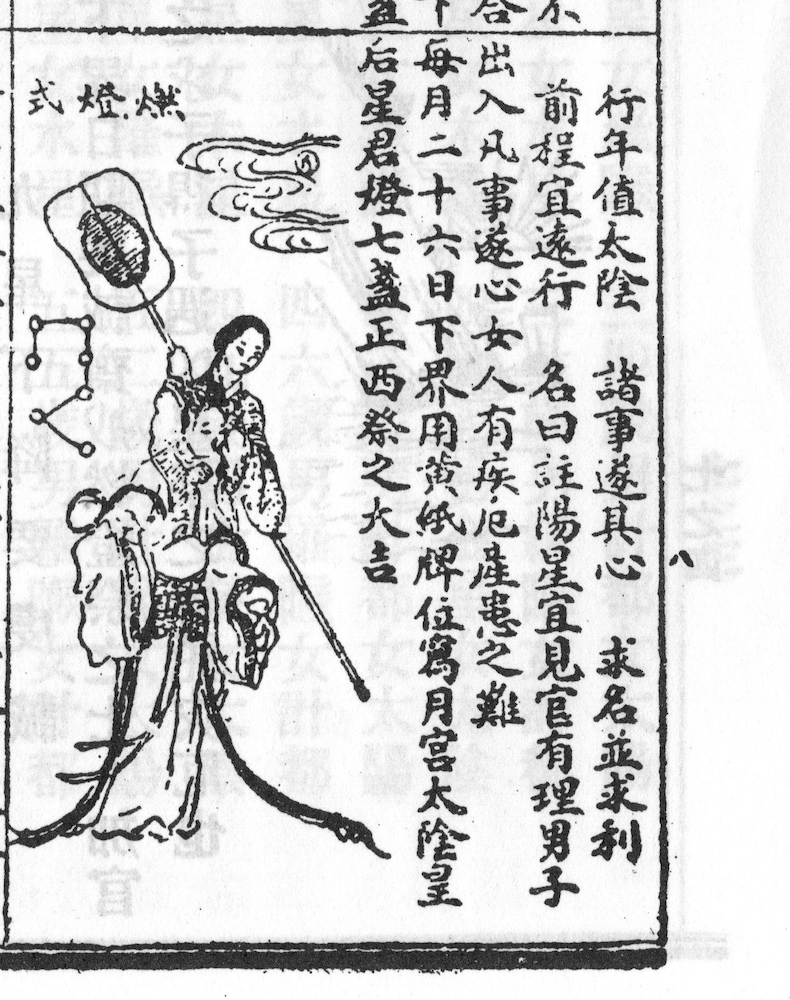 行年值太陰　諸事遂其心　求名並求利
前程宜遠行　名曰註陽星宜見官有理男子
出入凡事遂心女人有疾厄產患之難
每月二十六日下界用黄紙牌位寫月宮太陰皇
后星君燈七盞正西祭之大吉
燃燈式